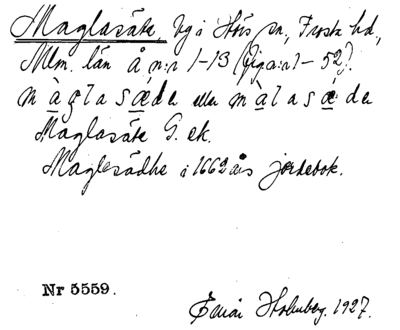 Maglasäte, by i Hörs sn, Frosta hd,
Mlm. län å n:r 1-13 (fig a:1-52).
màglasǽde eller màlasǽde
Maglasäte G. ek.
Maglesädhe i 1662 års jordebok.
Nr 5559.
Holmberg. 1927.